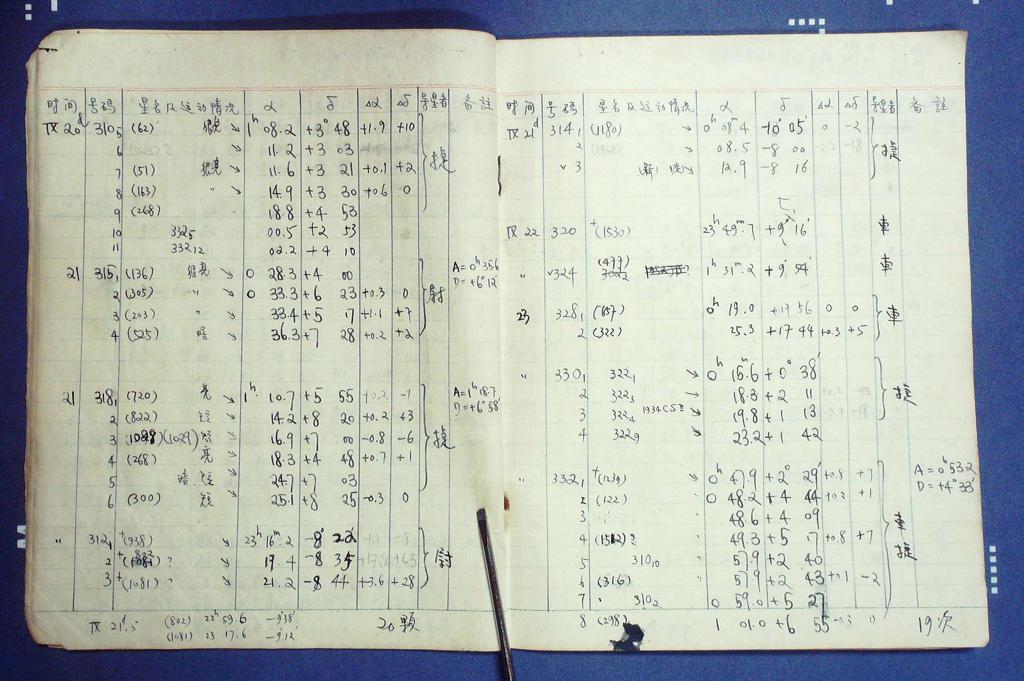 时间 号码 星名及运动情况 α δ Δα Δδ 寻星者 备註
IX 20d 310₅ (62) 很亮 ↘ 1h 08.2 +3° 48 +1.9 +10
6 11.2 +3 03
7 (51) 很亮 ↘ 11.6 +3 21 +0.1 +2
8 (163) " ↘ 14.9 +3 30 +0.6 0
9 (268) 18.8 +4 53
10 332₅ 00.5 +2 53
11 332₁₂ 02.2 +4 10
捷
21 315₁ (136) 很亮 ↘ 0 28.3 +4 00
2 (305) " ↘ 0 33.3 +6 23 +0.3 0
3 (203) " 33.4 +5 17 +1.1 +7
4 (525) 暗 ↘ 36.3 +7 28 +0.2 +2
尉
A = 0h 35.6
D = +6° 12'
21 318₁ (720) 亮 ↘ 1h 10.7 +5 55 +0.2 -1
2 (822) 短 ↘ 14.2 +8 20 +0.2 +3
3 (1029) 短 ↘ 16.9 +7 00 -0.8 -6
4 (268) 亮 ↘ 18.3 +4 48 +0.7 +1
5 暗 短 24.7 +7 03
6 (300) 短 ↘ 25.1 +8 25 -0.3 0
捷
A = 1h 18.7
D = +6° 58'
" 312₁ +(938) ↘ 23h 16m.2 -8° 22' -8
2 + ? ↘ 19.4 -8 35 +63
3 +(1081) ? ↘ 21.2 -8 44 +3.6 +28
尉
IX 21d.5 (802) 22h 59.6 -9°38'
(1081) 23 17.6 -9°12'
20 顆
时间 号码 星名及运动情况 α δ Δα Δδ 寻星者 备註
IX 21d 314₁ (1180) ↘ 0h 08m.4 -10° 05' 0 -2
2 08.5 -8 00
v 3 (新) ↘ 12.9 -8 16
捷
IX 22 320 +(1530) 23h 49m.7 +9° 16' 車
" v324 (499) 1h 31m.2 +9° 54' 車
23 328₁ (857) 0h 19.0 +17 56 0 0
2 (322) 25.3 +17 44 +0.3 +5
車
" 330₁ 322₁ ↘ 0h 15m.6 +0° 38'
2 322₃ ↘ 18.3 +2 11
3 322₄ 1934CS? ↗ 19.8 +1 13
4 322₉ ↘ 23.2 +1 42
捷
" 332₁ +(1239) ↘ 0h 47.9 +2° 29' +0.8 +7
2 (122) " 0 48.2 +4 44 +0.2 +1
3 " 48.6 +4 09
4 (1512)? " 49.3 +5 17 +0.8 +7
5 310₁₀ 57.9 +2 40
6 (316) " 57.9 +2 43 +0.1 -2
7 310₂ 0 59.0 +5 27
8 (298) 1 01.0 +6 55 -0.3 0
車
捷
A = 0h 53.2
D = +4° 33'
19次